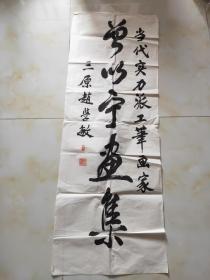 当代实力派工笔画家
曾以宁画集
三原赵学敏